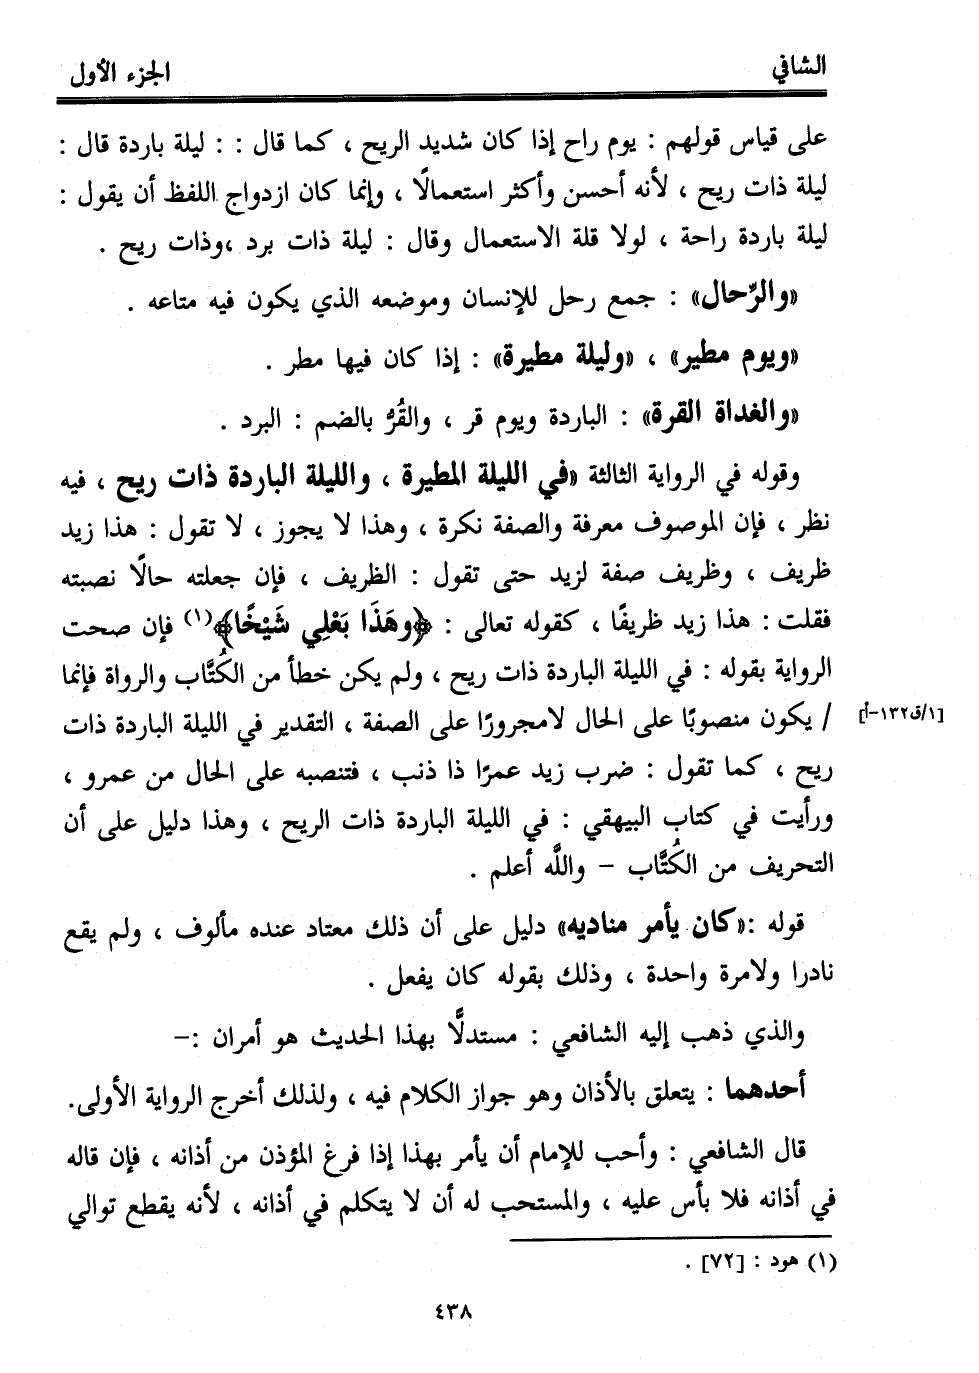 الشافي
الجزء الأول
على قياس قولهم : يوم راح إذا كان شديد الريح ، كما قال : : ليلة باردة قال :
ليلة ذات ريح ، لأنه أحسن وأكثر استعمالًا ، وإنما كان ازدواج اللفظ أن يقول :
ليلة باردة راحة ، لولا قلة الاستعمال وقال : ليلة ذات برد ،وذات ريح .
«والرِّحال» : جمع رحل للإنسان وموضعه الذي يكون فيه متاعه .
«ويوم مطير» ، «وليلة مطيرة» : إذا كان فيها مطر .
«والغداة القرة» : الباردة ويوم قر ، والقُرُّ بالضم : البرد .
وقوله في الرواية الثالثة «في الليلة المطيرة ، والليلة الباردة ذات ريح ، فيه
نظر ، فإن الموصوف معرفة والصفة نكرة ، وهذا لا يجوز ، لا تقول : هذا زيد
ظريف ، وظريف صفة لزيد حتى تقول : الظريف ، فإن جعلته حالًا نصبته
فقلت : هذا زيد ظريفًا ، كقوله تعالى : ﴿وهَذَا بَعْلِي شَيْخًا﴾(١) فإن صحت
الرواية بقوله : في الليلة الباردة ذات ريح ، ولم يكن خطأ من الكُتَّاب والرواة فإنما
/ يكون منصوبًا على الحال لامجرورًا على الصفة ، التقدير في الليلة الباردة ذات
[١/ق١٣٢-أ]
ريح ، كما تقول : ضرب زيد عمرًا ذا ذنب ، فتنصبه على الحال من عمرو ،
ورأيت في كتاب البيهقي : في الليلة الباردة ذات الريح ، وهذا دليل على أن
التحريف من الكُتَّاب - واللَّه أعلم .
قوله :«كان يأمر مناديه» دليل على أن ذلك معتاد عنده مألوف ، ولم يقع
نادرا ولامرة واحدة ، وذلك بقوله كان يفعل .
والذي ذهب إليه الشافعي : مستدلًّا بهذا الحديث هو أمران :-
أحدهما : يتعلق بالأذان وهو جواز الكلام فيه ، ولذلك أخرج الرواية الأولى.
قال الشافعي : وأحب للإمام أن يأمر بهذا إذا فرغ المؤذن من أذانه ، فإن قاله
في أذانه فلا بأس عليه ، والمستحب له أن لا يتكلم في أذانه ، لأنه يقطع توالي
(١) هود : [٧٢] .
٤٣٨